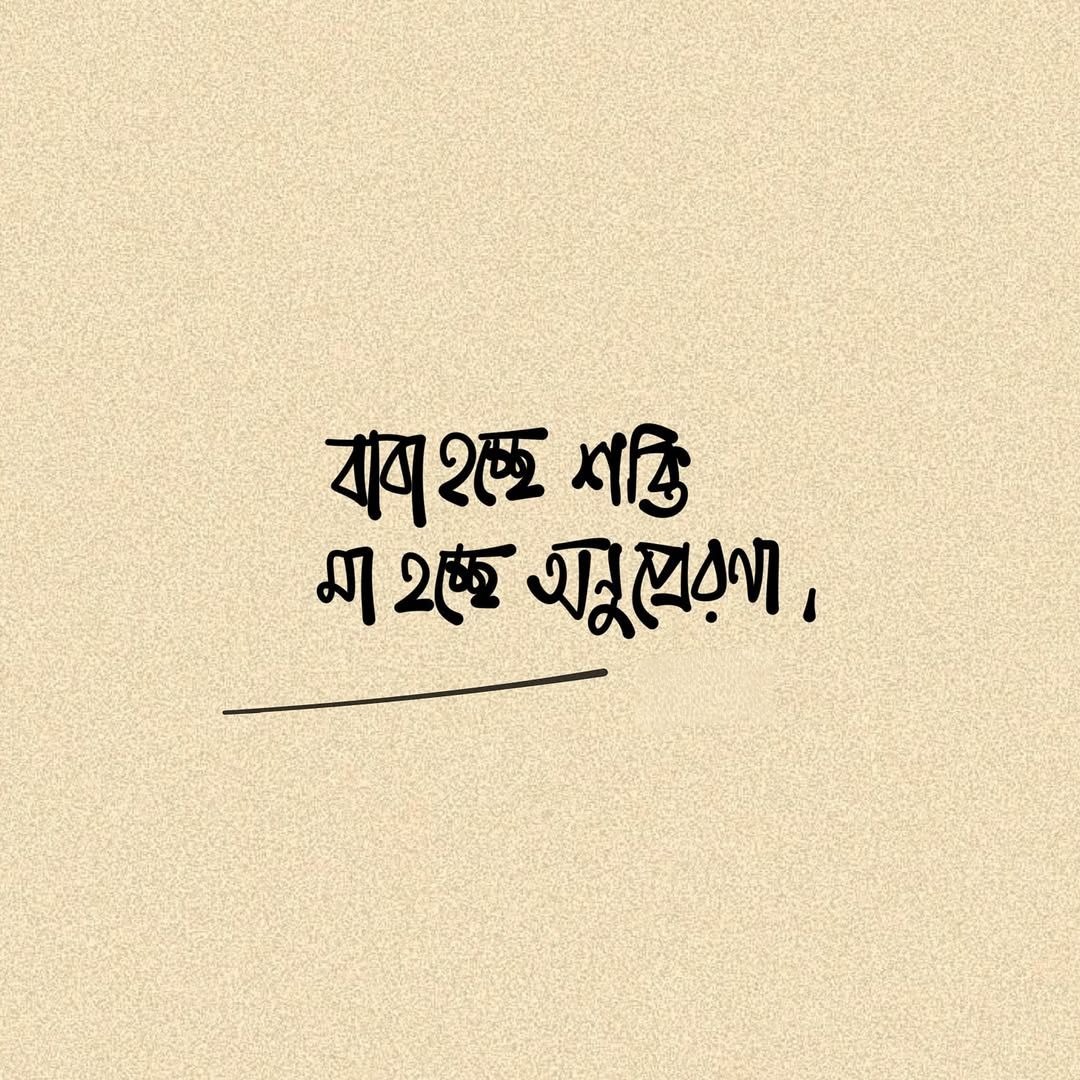 বাবা হচ্ছে শক্তি
মা হচ্ছে অনুপ্রেরণা।